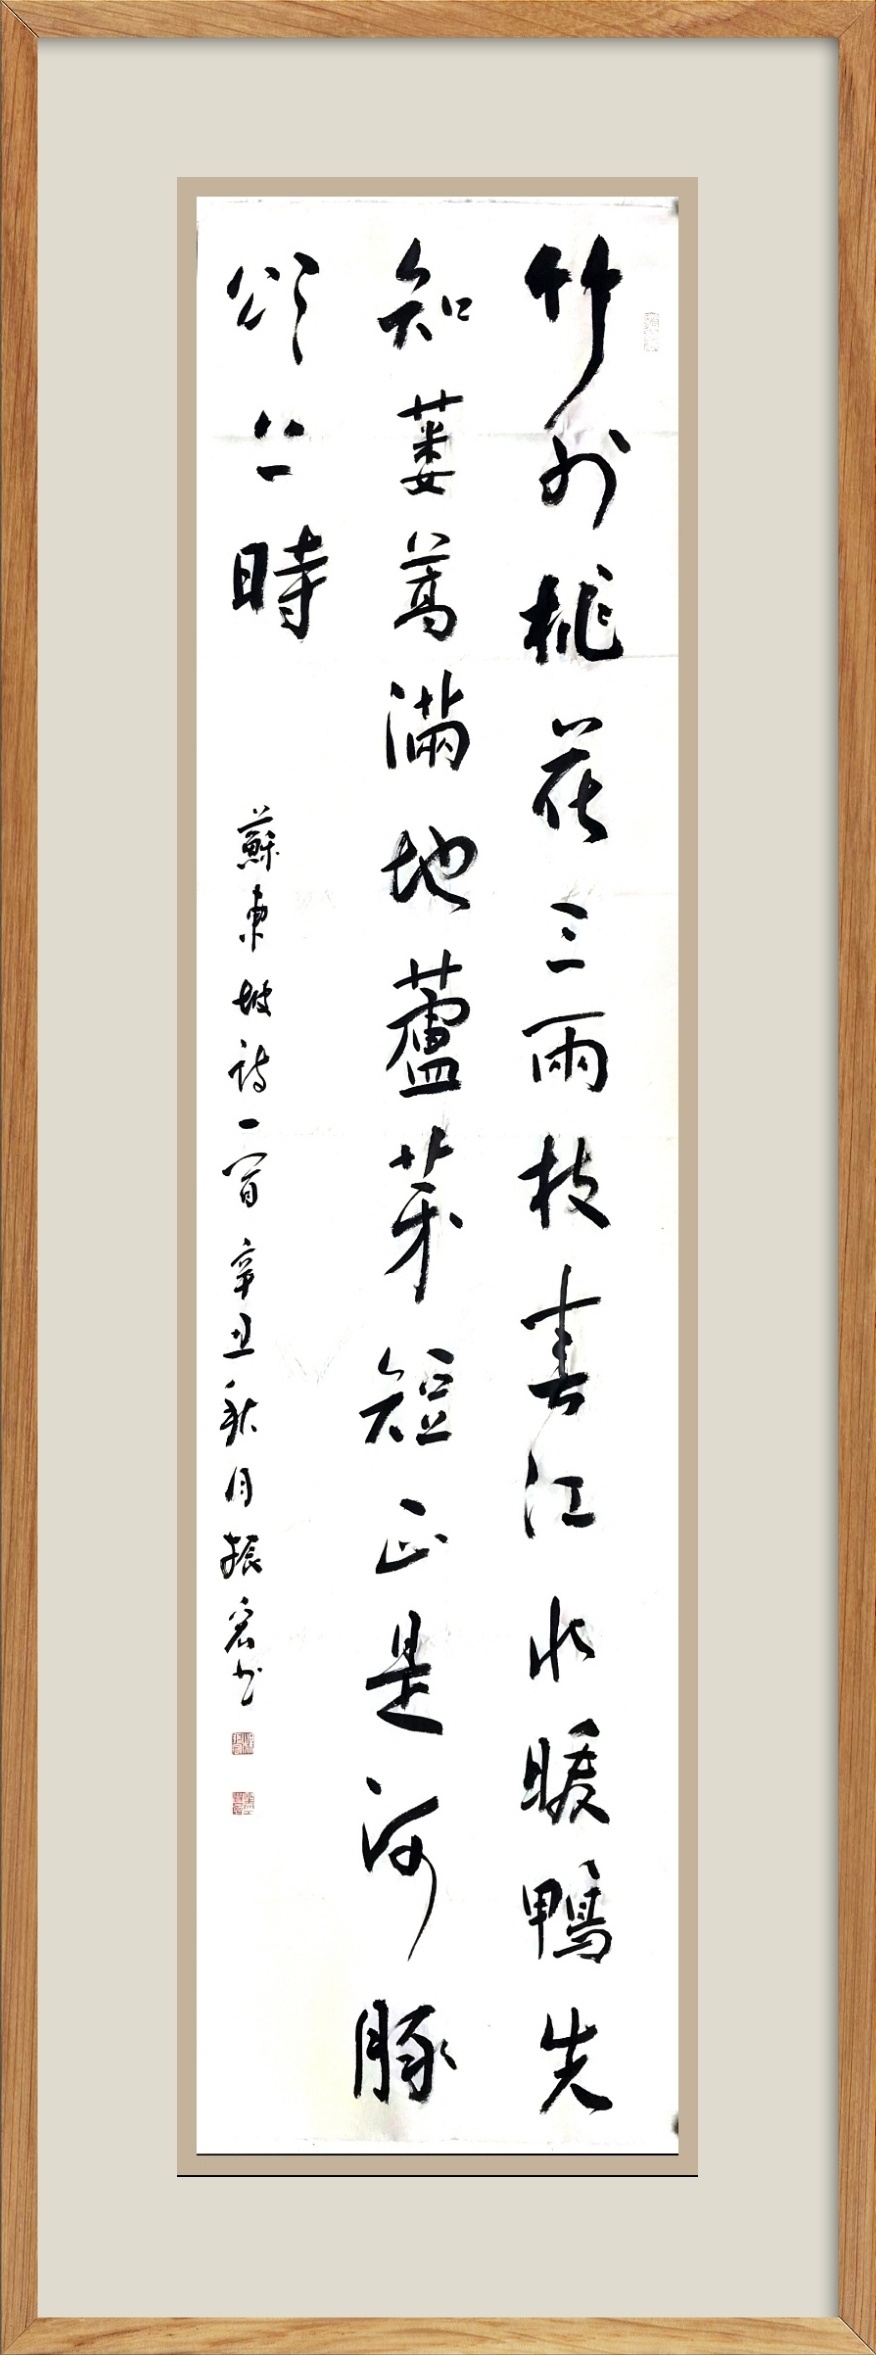 竹外桃花三兩枝春江水暖鴨先
知蔞蒿滿地蘆芽短正是河豚
欲上時
蘇東坡詩一首辛丑秋月振宏书